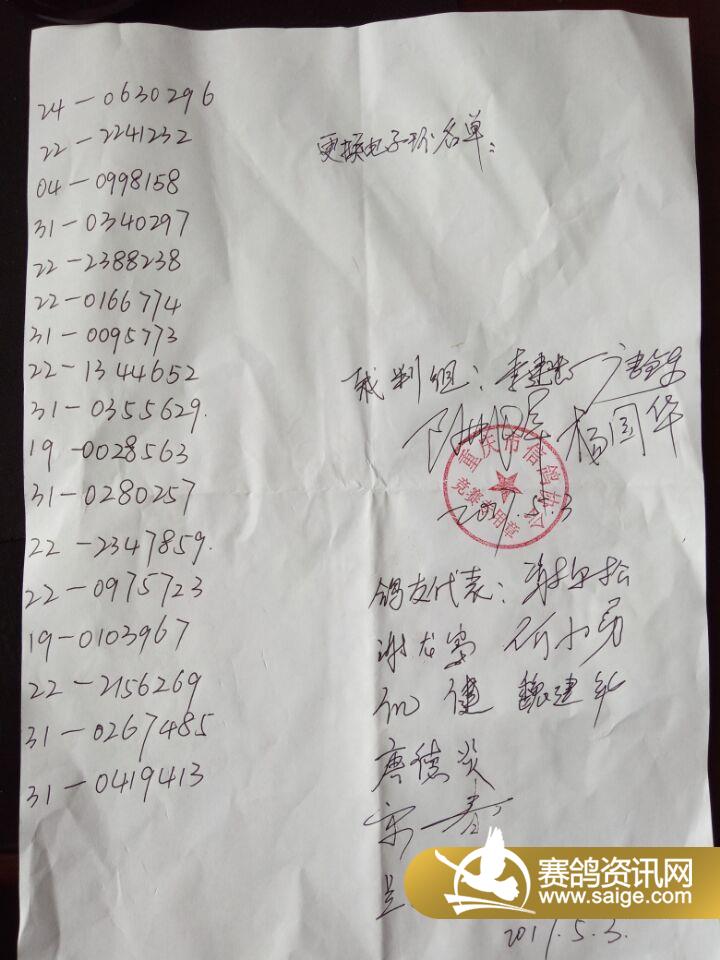 24-0630296
22-2241232
04-0998158
31-0340297
22-2388238
22-0166774
31-0095773
22-1344652
31-0355629.
19-0028563
31-0280257
22-2347859.
22-0975723
19-0103967
22-2156269
31-0267485
31-0419413
更换电子环名单:
裁判组:
杨国华
重庆市信鸽协会
竞赛专用章
2017.5.3
鸽友代表:
何小勇
健 魏建
唐德炎
宋春
2017.5.3.
赛鸽资讯网
www.saige.com